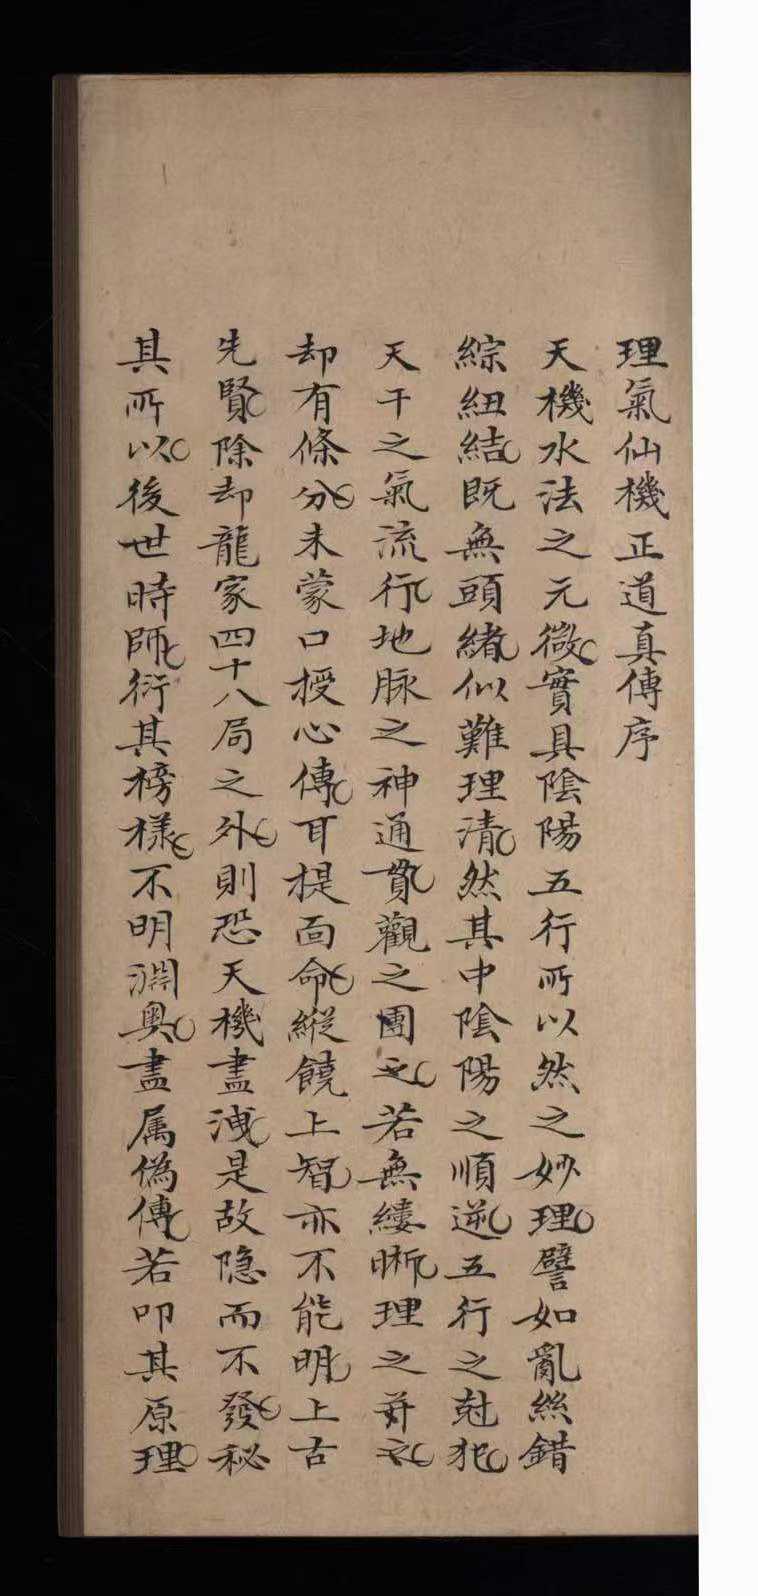 理氣仙機正道真傳序
天機水法之元微實具陰陽五行所以然之妙理譬如亂絲錯
綜紐結既無頭緒似難理清然其中陰陽之順逆五行之尅犯
天干之氣流行地脉之神通貫觀之團之若無縷晰理之井之
却有條分未蒙口授心傳耳提面命縱饒上智亦不能明上古
先賢除却龍家四十八局之外則恐天機盡洩是故隐而不發秘
其所以後世時師衍其榜樣不明淵奥盡属偽傳若叩其原理